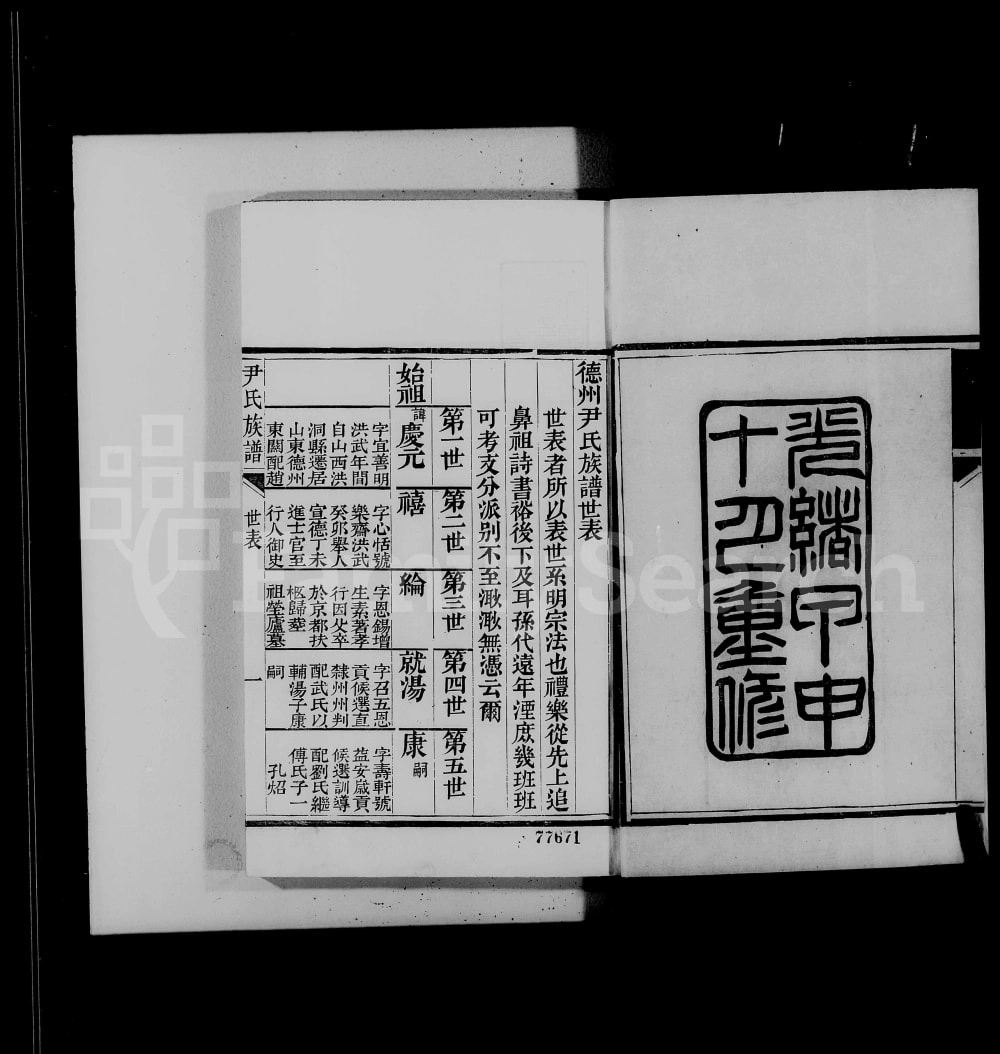 光緒甲申
十月重修
德州尹氏族譜世表
世表者所以表世系明宗法也禮樂從先上追
鼻祖詩書裕後下及耳孫代遠年湮庶幾班班
可考支分派別不至淆淆無憑云爾
第一世
第二世
第三世
第四世
第五世
始祖諱慶元
字宜善明
洪武年間
自山西洪
洞縣遷居
山東德州
東關配趙
禧
字心恬號
樂齋洪武
癸卯舉人
宣德丁未
進士官至
行人御史
綸
字恩錫增
生素著孝
行因父卒
於京都扶
柩歸塟
祖塋廬墓
就湯
字召五恩
貢候選直
隸州州判
配武氏以
輔湯子康
嗣
康嗣
字壽軒號
益安歲貢
候選訓導
配劉氏繼
傅氏子一
孔炤
尹氏族譜
世表
一
77671
FamilySearch